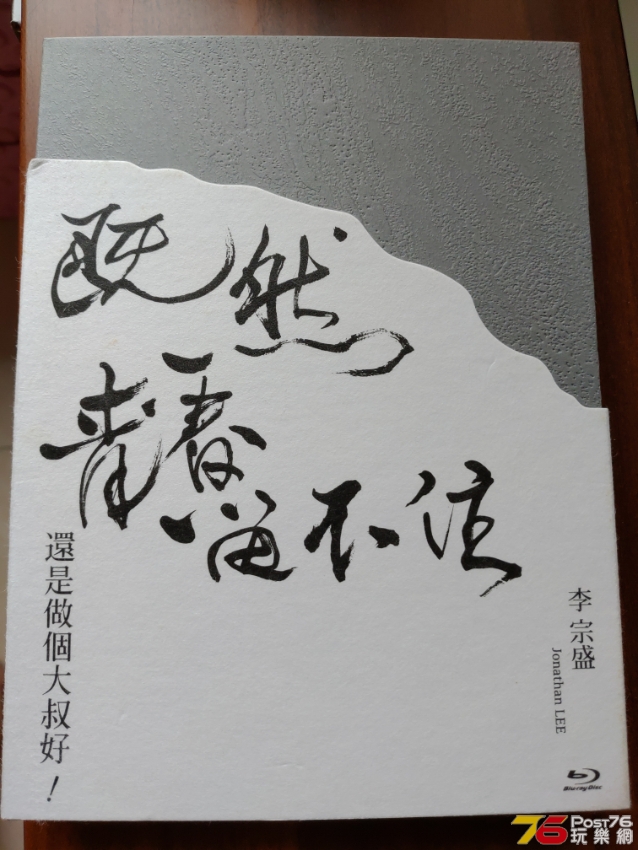 既然
青春留不住
還是做個大叔好！
李宗盛
Jonathan LEE
Blu-ray Disc
76 Post76
玩樂網